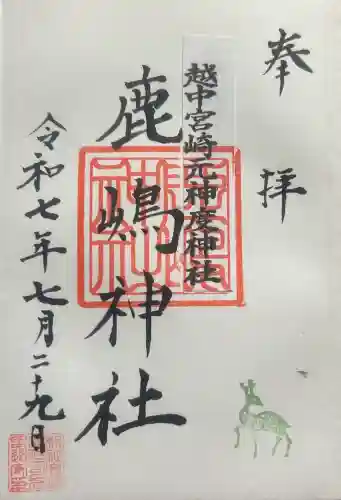 奉拝
越中宮崎元神度神社
鹿嶋神社
令和七年七月二十九日